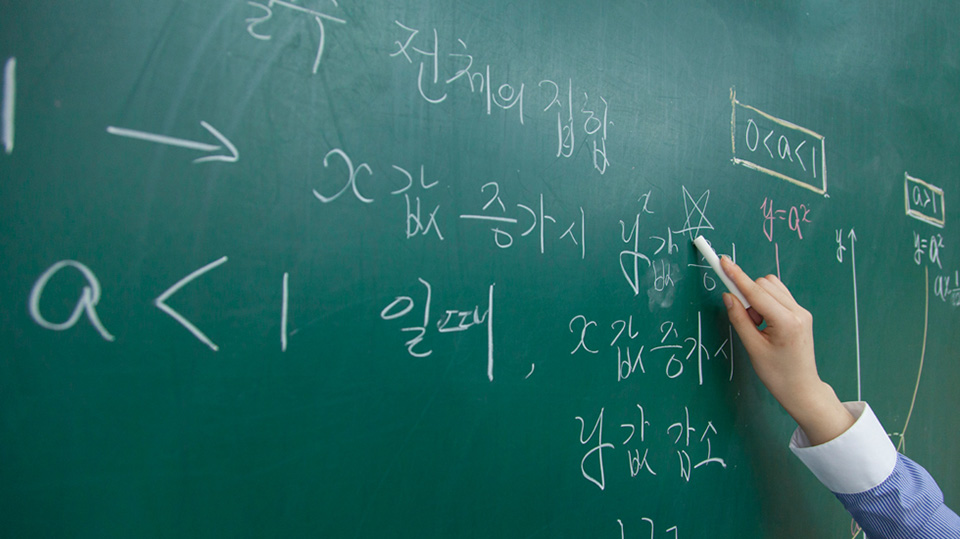 전체의 집합
→ x값 증가시 y값
a<1 일때, x값 증가시
y값 감소
0<a<1
y=aˣ
y
a>1
y=aˣ